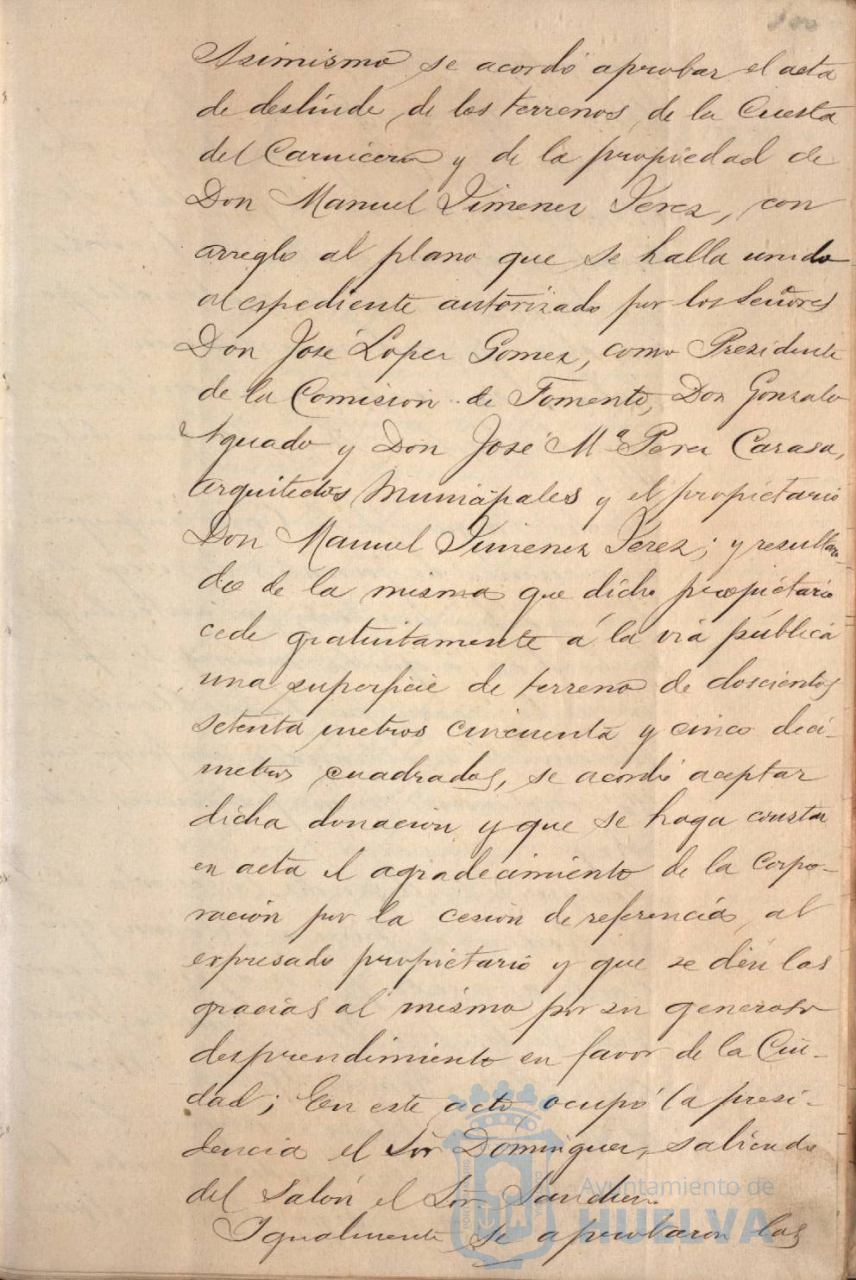 100
Asimismo se acordó aprobar el acta
de deslinde de los terrenos de la Cuesta
del Carnicero y de la propiedad de
Don Manuel Jimenez Jerez, con
arreglo al plano que se halla unido
al espediente autorizado por los Señores
Don José Lopez Gomez, como Presidente
de la Comision de Fomento, Don Gonzalo
Aguado y Don José Mª Perez Carasa,
arquitectos Municipales y el propietario
Don Manuel Jimenez Jerez; y resultan-
do de la misma que dicho propietario
cede gratuitamente á la vía pública
una superficie de terreno de doscientos
setenta metros cincuenta y cinco decí-
metros cuadrados, se acordó aceptar
dicha donacion y que se haga constar
en acta el agradecimiento de la Corpo-
ración por la cesion de referencia, al
expresado propietario y que se dén las
gracias al mismo por su generoso
desprendimiento en favor de la Ciu-
dad; En este acto ocupó la presi-
dencia el Sor Dominguez, saliendo
del Salón el Sor Sanchez.
Igualmente se aprobaron las
Ayuntamiento de
HUELVA